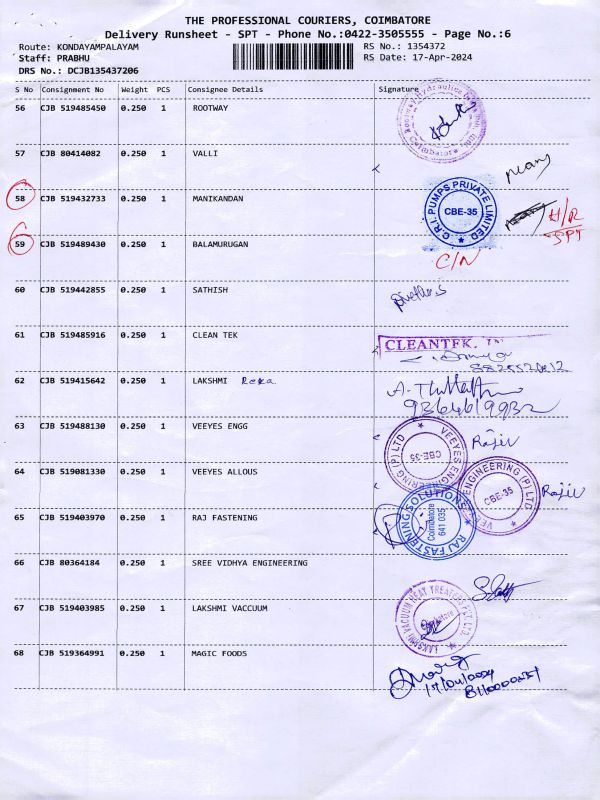 THE PROFESSIONAL COURIERS, COIMBATORE
Delivery Runsheet - SPT - Phone No.:0422-3505555 - Page No.:6
Route: KONDAYAMPALAYAM
RS No.: 1354372
Staff: PRABHU
RS Date: 17-Apr-2024
DRS No.: DCJB135437206
S No Consignment No Weight PCS Consignee Details Signature
56 CJB 519485450 0.250 1 ROOTWAY
57 CJB 80414082 0.250 1 VALLI
58 CJB 519432733 0.250 1 MANIKANDAN
C.R.I. PUMPS PRIVATE LIMITED
CBE-35
H/R
SPT
59 CJB 519489430 0.250 1 BALAMURUGAN
C/N
60 CJB 519442855 0.250 1 SATHISH
61 CJB 519485916 0.250 1 CLEAN TEK
CLEANTEK.
62 CJB 519415642 0.250 1 LAKSHMI Reka
9364619932
63 CJB 519488130 0.250 1 VEEYES ENGG
VEEYES ENGINEERING (P) LTD
CBE-35
Rajiv
64 CJB 519081330 0.250 1 VEEYES ALLOUS
VEEYES ENGINEERING (P) LTD
CBE-35
Rajiv
65 CJB 519403970 0.250 1 RAJ FASTENING
RAJ FASTENING SOLUTIONS
Coimbatore
641 035
66 CJB 80364184 0.250 1 SREE VIDHYA ENGINEERING
67 CJB 519403985 0.250 1 LAKSHMI VACCUUM
LAKSHMI VACUUM HEAT TREATERS PVT LTD.
68 CJB 519364991 0.250 1 MAGIC FOODS